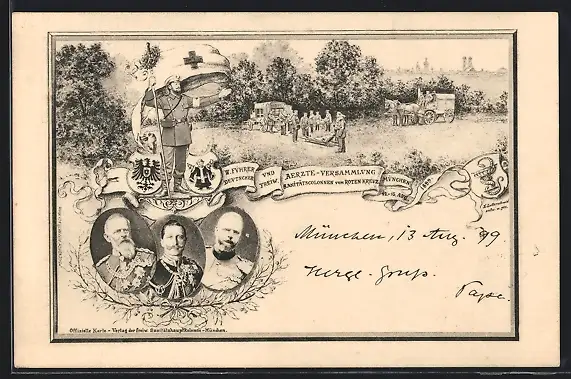 V. FÜHRER UND AERZTE-VERSAMMLUNG
DEUTSCHER FREIW. SANITÄTSCOLONNEN VOM ROTEN KREUZ
MÜNCHEN 1899
12.-15. AUG.
München, 13 Aug. 99
Herzl. Gruß.
Pape.
Officielle Karte - Verlag der freiw. Sanitätshauptkolonne - München.